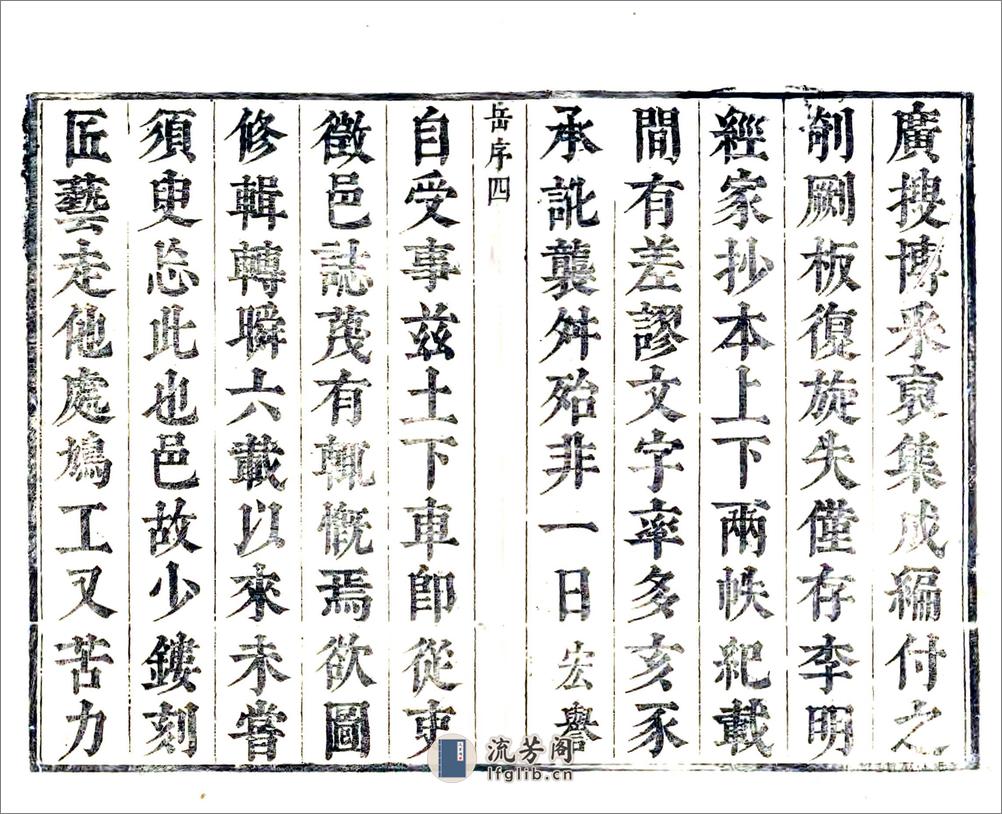 廣搜博采裒集成編付之
剞劂板復旋失僅存李明
經家抄本上下兩帙紀載
間有差謬文字率多亥豕
承訛襲舛殆非一日宏譽
岳序四
自受事兹土下車卽從吏
徵邑誌茂有輒慨焉欲圖
修輯轉瞬六載以來未嘗
須臾忘此也邑故少鏤刻
匠藝走他處鳩工又苦力
流芳阁
lfglib.cn